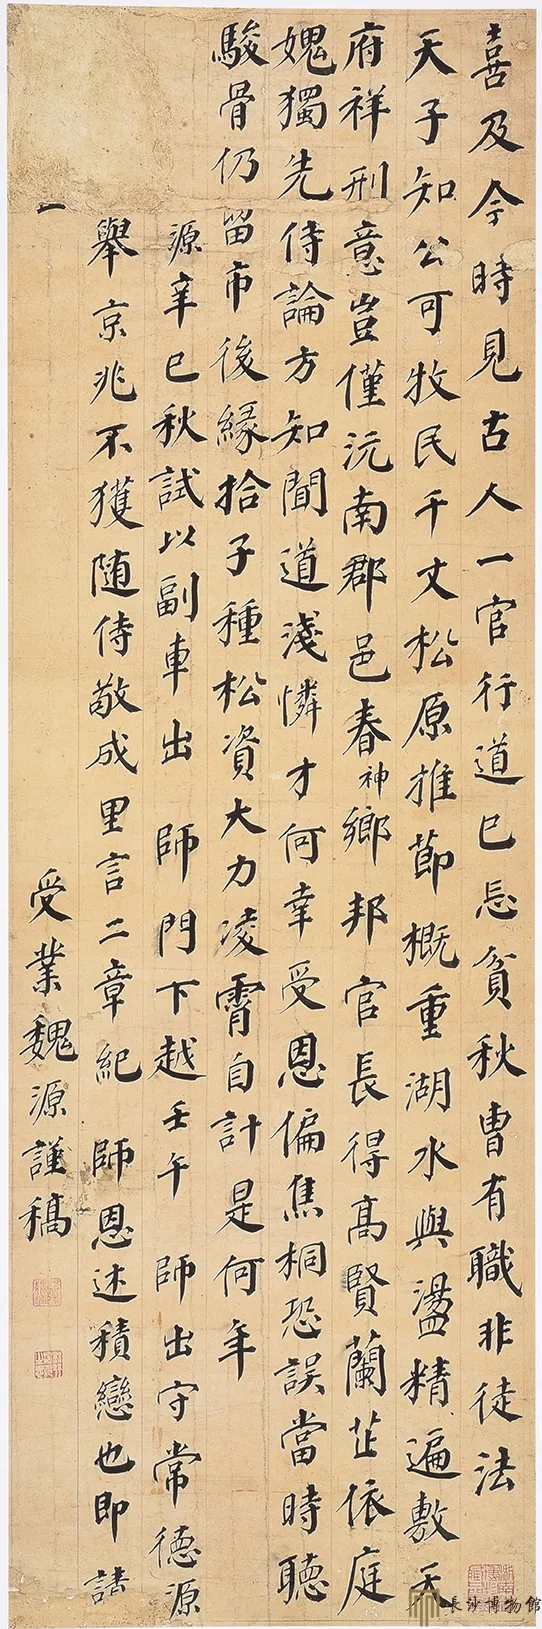 喜及今時見古人一官行道已忘貧秋曹有職非徒法
天子知公可牧民千丈松原推節概重湖水與盪精遍敷天
府祥刑意豈僅沅南郡邑春神鄉邦官長得高賢蘭芷依庭
媿獨先侍論方知聞道淺憐才何幸受恩偏焦桐恐誤當時聽
駿骨仍留市後緣拾子種松資大力凌霄自計是何年
源辛巳秋試以副車出 師門下越壬午 師出守常德源
一舉京兆不獲随侍敬成里言二章紀 師恩述積戀也即請
受業魏源謹稿
長沙博物館